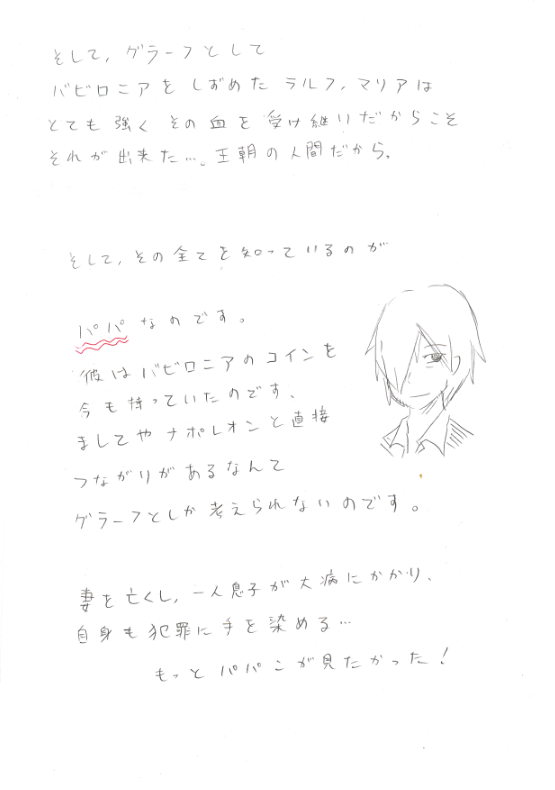 そして、グラーフとして
バビロニアをしずめたラルフ、マリアは
とても強くその血を受け継いだからこそ
それが出来た…。王朝の人間だから。
そして、その全てを知っているのが
パパなのです。
彼はバビロニアのコインを
今も持っていたのです、
ましてやナポレオンと直接
つながりがあるなんて
グラーフとしか考えられないのです。
妻を亡くし、一人息子が大病にかかり、
自身も犯罪に手を染める…
もっとパパンが見たかった!